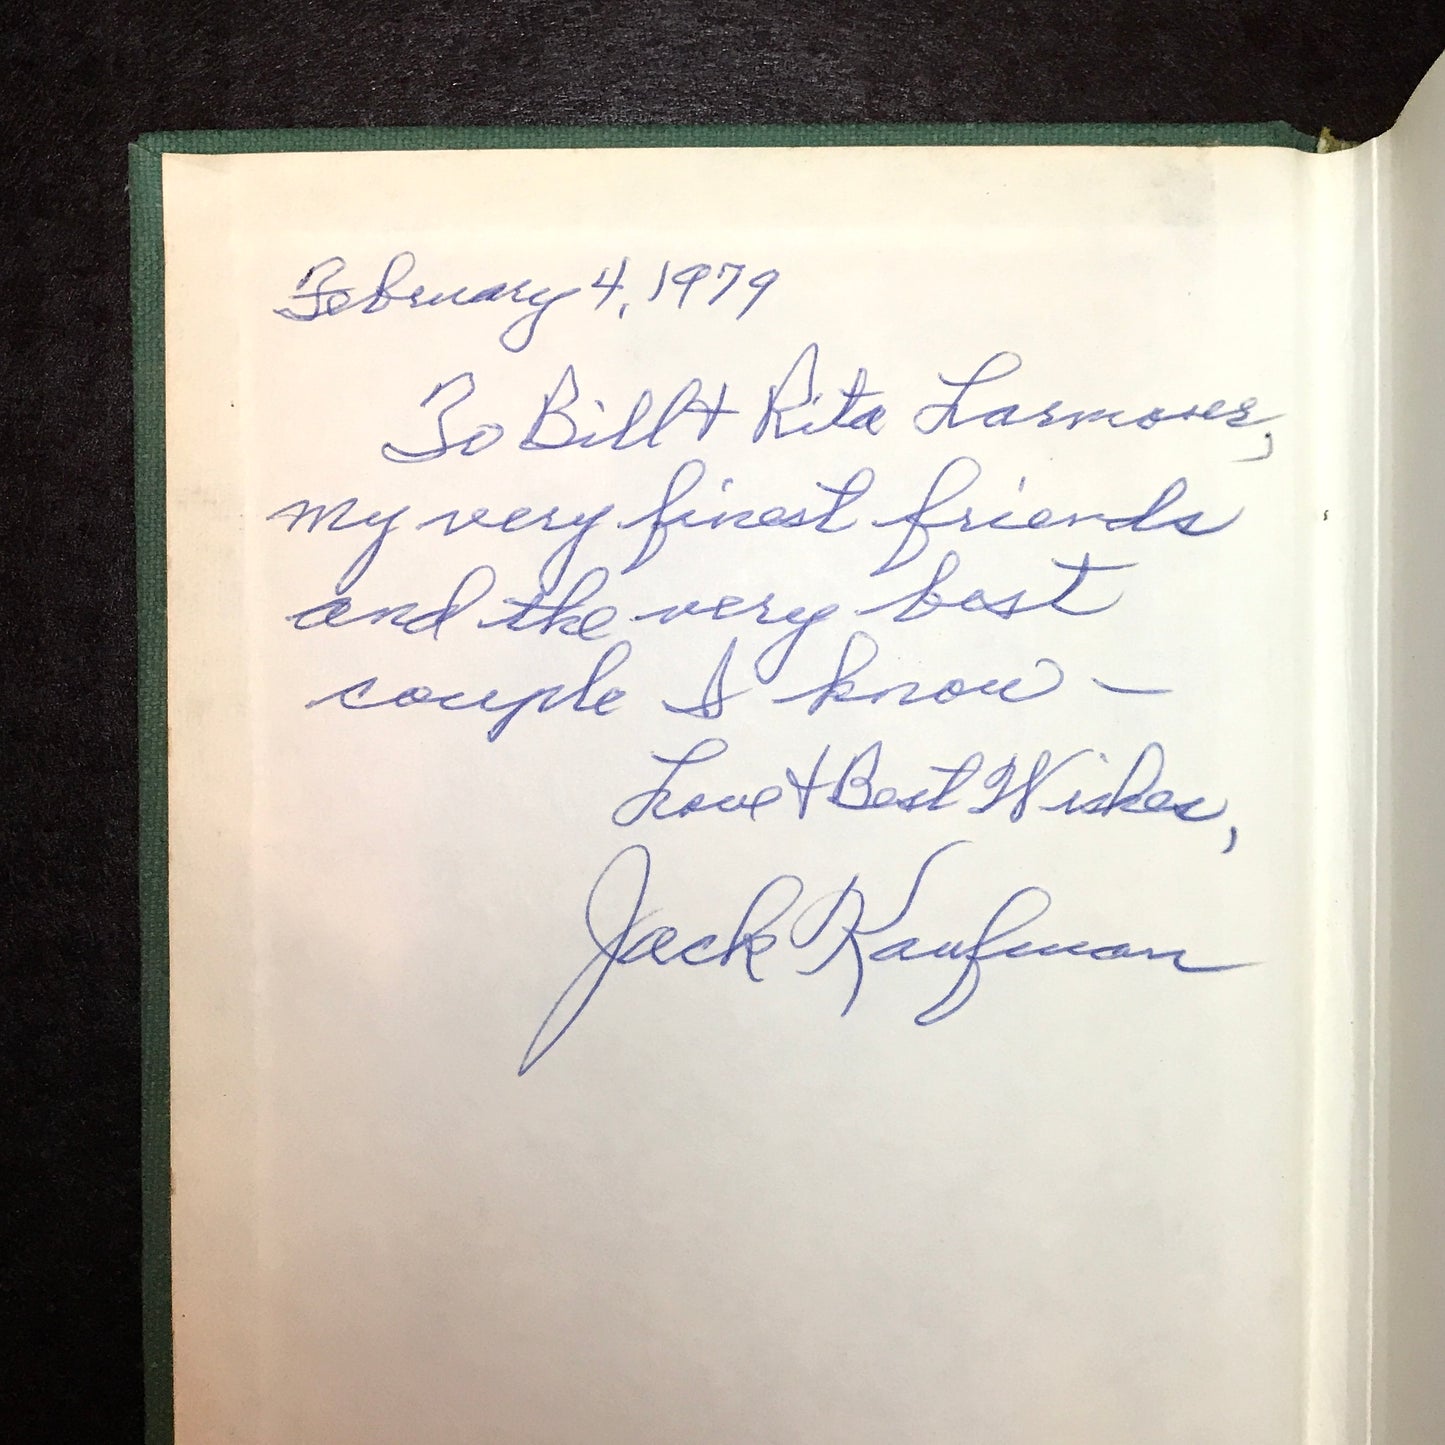 February 4, 1979
To Bill + Rita Larmoser,
my very finest friends
and the very best
couple I know –
Love + Best Wishes,
Jack Kaufman